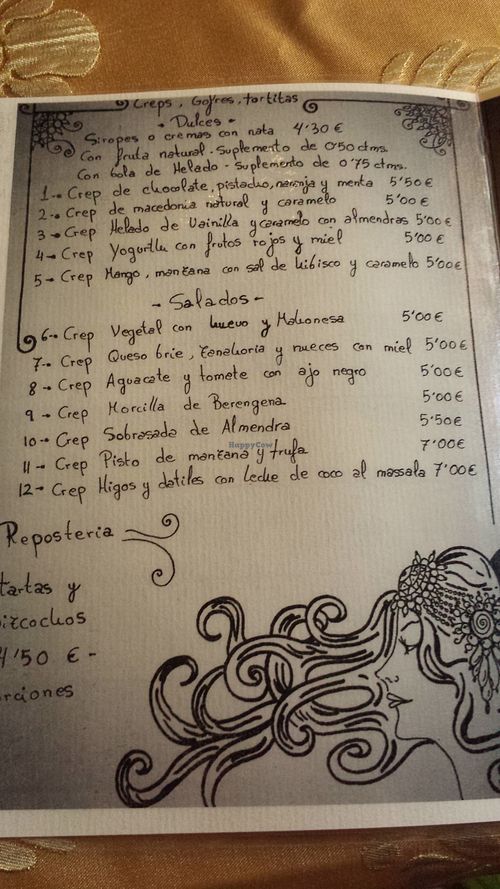 Creps, Gofres, tortitas
- Dulces -
Siropes o cremas con nata 4'30 €
Con fruta natural - Suplemento de 0'50 ctms.
Con bola de Helado - Suplemento de 0'75 ctms.
1 - Crep de chocolate, pistacho, naranja y menta 5'50 €
2 - Crep de macedonia natural y caramelo 5'00 €
3 - Crep Helado de Vainilla y caramelo con almendras 5'00 €
4 - Crep Yogurthu con frutos rojos y miel 5'00 €
5 - Crep Mango, manzana con sal de hibisco y caramelo 5'00 €
- Salados -
6 - Crep Vegetal con huevo y Mahonesa 5'00 €
7 - Crep Queso brie, zanahoria y nueces con miel 5'00 €
8 - Crep Aguacate y tomate con ajo negro 5'00 €
9 - Crep Morcilla de Berengena 5'00 €
10 - Crep Sobrasada de Almendra 5'50 €
11 - Crep Pisto de manzana y trufa 7'00 €
12 - Crep Higos y datiles con Leche de coco al massala 7'00 €
HappyCow
Reposteria
tartas y
bizcochos
4'50 € -
rciones